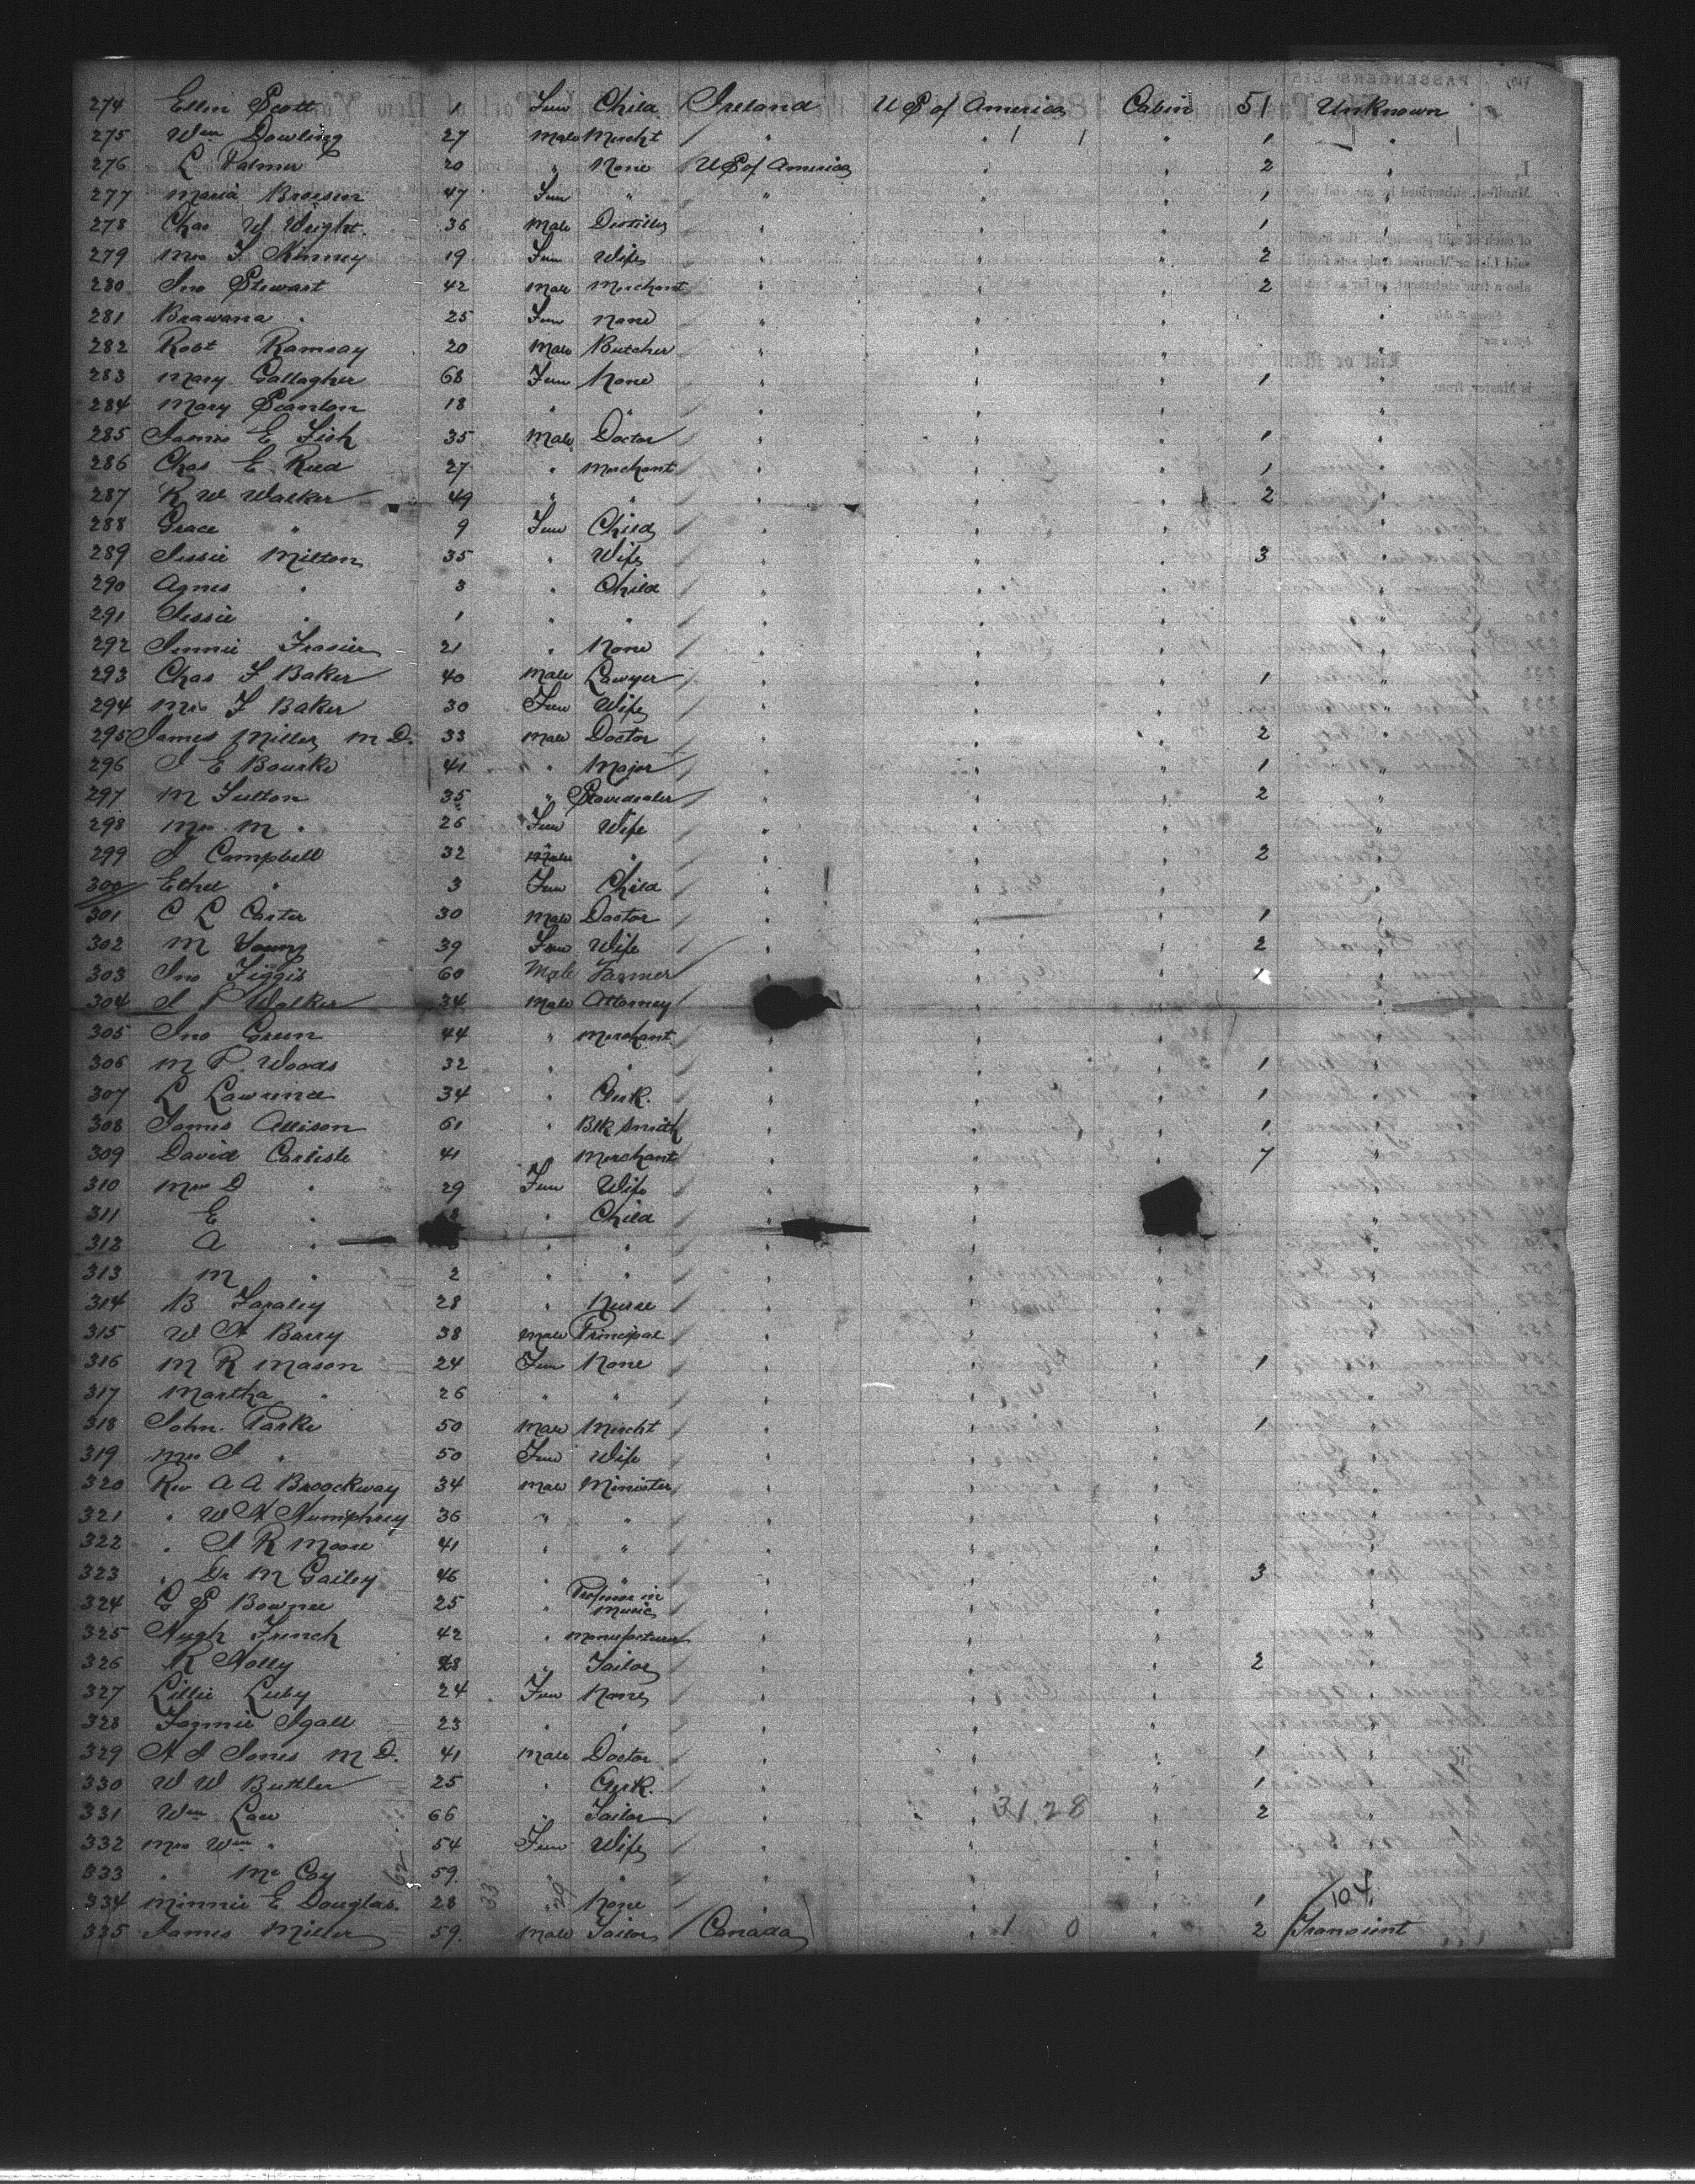 274 Ellen Scott 1 Fem Child Ireland U S of America Cabin 51 Unknown
275 Wm Dowling 27 Male Mercht " " 1 1 " 1 "
276 L Palmer 20 " None U S of America " " 2 "
277 Maria 47 Fem " " " " 1 "
278 Chas W Wright 36 Male Distiller " " " 1 "
279 Mrs F Kinney 19 Fem Wife " " " 2 "
280 Jno Stewart 42 Male Merchant " " " 2 "
281 Brawana " 25 Fem None " " " "
282 Robt Ramsay 20 Male Butcher " " " "
283 Mary Gallagher 68 Fem None " " " 1 "
284 Mary Scanlon 18 " " " " " "
285 James E Fish 35 Male Doctor " " " 1 "
286 Chas E Reed 27 " Merchant " " " 1 "
287 R W Walker 49 " " " " " 2 "
288 Grace " 9 Fem Child " " " "
289 Jessie Milton 35 " Wife " " " 3 "
290 Agnes " 3 " Child " " " "
291 Jessie " 1 " " " " " "
292 Jennie Frasier 21 " None " " " "
293 Chas F Baker 40 Male Lawyer " " " 1 "
294 Mrs F Baker 30 Fem Wife " " " "
295 James Miller M D. 33 Male Doctor " " " 2 "
296 J E Bourke 41 " Major " " " 1 "
297 M Fulton 35 " Stovedealer " " " 2 "
298 Mrs M " 26 Fem Wife " " " "
299 J Campbell 32 Male " " " " 2 "
300 Ethel " 3 Fem Child " " " "
301 C L Carter 30 Male Doctor " " " 1 "
302 M Young 39 Fem Wife " " " 2 "
303 Jno Figgis 60 Male Farmer " " " 1 "
304 J P Walker 34 Male Attorney " " "
305 Jno Green 44 " Merchant " " " "
306 M P. Woods 32 " " " " " 1 "
307 L Lawrence 34 " Clerk. " " " 1 "
308 James Allison 61 " Blk Smith " " " 1 "
309 David Carlisle 41 " Merchant " " " 7 "
310 Mrs D " 29 Fem Wife " " "
311 E " " Child " " "
312 A " " " " " "
313 M " 2 " " " " " "
314 B 28 " Nurse " " " "
315 W H Barry 38 Male Principal " " " "
316 M R Mason 24 Fem None " " " 1 "
317 Martha " 26 " " " " " "
318 John Parke 50 Male Mercht " " " 1 "
319 Mrs J " 50 Fem Wife " " " "
320 Rev A A Broockway 34 Male Minister " " " "
321 " W H Humphrey 36 " " " " " "
322 " J R Moore 41 " " " " " "
323 " Dr M Gailey 46 " " " " " 3 "
324 G S Bownee 25 " Professor in Music " " " "
325 Hugh French 42 " Manufacturer " " " "
326 R Holly 48 " Tailor " " " 2 "
327 Lillie Luby 24 Fem None " " " "
328 Fannie Igall 23 " " " " " "
329 H J Jones M D. 41 Male Doctor " " " 1 "
330 W W Buttler 25 " Clerk. " " " 1 "
331 Wm Law 66 " Tailor " 31.28 " 2 "
332 Mrs Wm " 54 Fem Wife " " " "
333 " Mc Coy 59. " " " " " "
334 Minnie E Douglas. 28 33 29 " None " " " 1 104
335 James Miller 59. Male Tailor Canada " 1 0 " 2 Transient